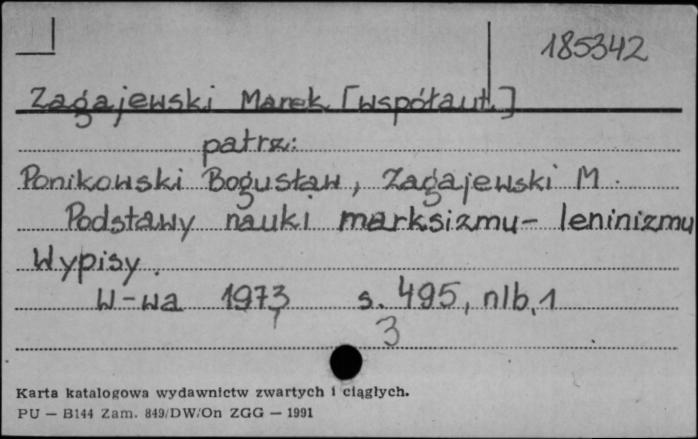 185342
Zagajewski Marek [współaut.]
patrz:
Ponikowski Bogusław, Zagajewski M.
Podstawy nauki marksizmu-leninizmu
Wypisy.
W-wa 1973 s. 495, nlb. 1
3
Karta katalogowa wydawnictw zwartych i ciągłych.
PU — B144 Zam. 849/DW/On ZGG — 1991